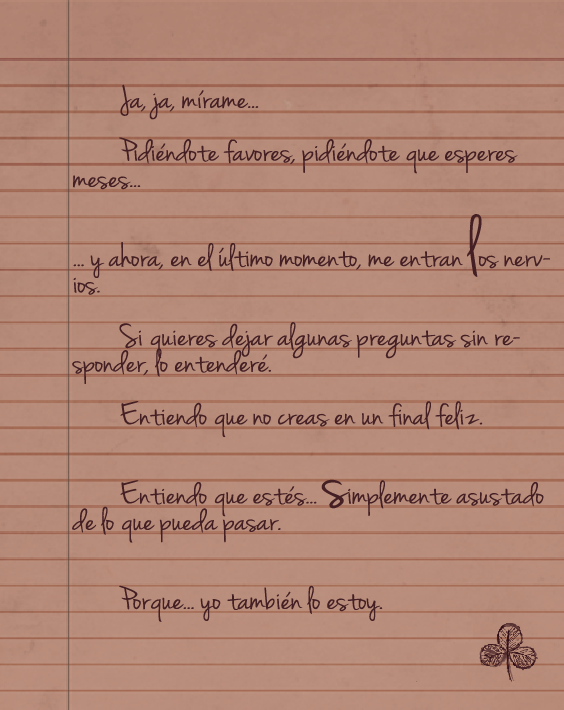 Ja, ja, mírame...
Pidiéndote favores, pidiéndote que esperes
meses...
... y ahora, en el último momento, me entran los nerv-
ios.
Si quieres dejar algunas preguntas sin re-
sponder, lo entenderé.
Entiendo que no creas en un final feliz.
Entiendo que estés... Simplemente asustado
de lo que pueda pasar.
Porque... yo también lo estoy.